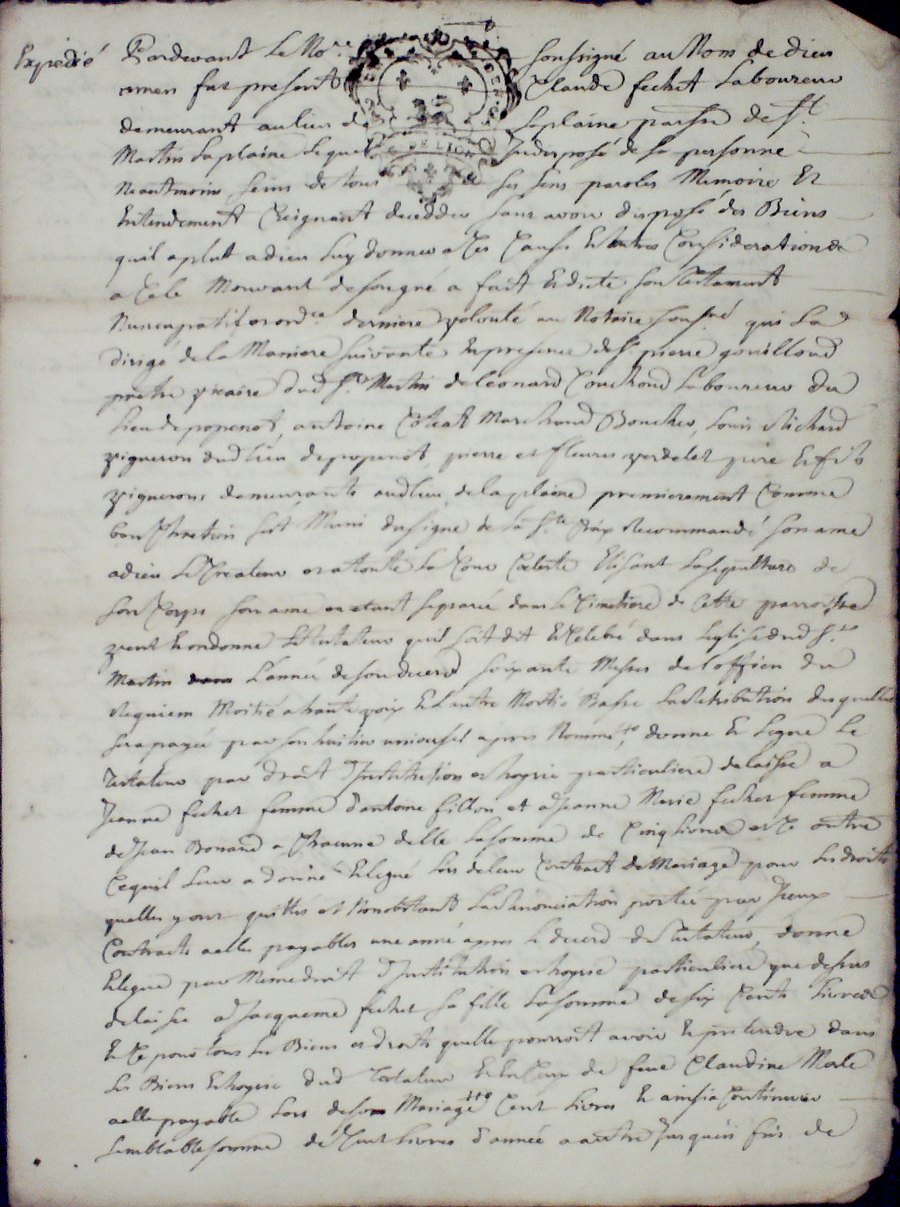 Expedié
Pardevant Le No.re soussigné au Nom de dieu
amen fut present Claude fechet Laboureur
demeurant au lieu de Laplaine parsse de St
Martin Laplaine Lequel Indisposé de sa personne
Neantmoins seins de tous ses sens paroles Memoire Et
Entendement Craignant decedder sans avoir disposé des Biens
quil a plut a dieu Luy donner a Ces Causes Et autres Considerations
a Cele Mouvant de son gré a fait Et dicté son testament
Nuncupatif et ord.re derniere volonté au Notaire soussné qui La
dirigé de la Maniere suivante En presence de Sr pierre gouilloud
pretre vicaire dud St Martin de Leonard Couchoud Laboureur du
Lieu de popenot, antoine Marchand Boucher, Louis Richard
vigneron dud lieu de popenot, pierre et fleuris verdelet pere Et fils
vignerons demeurants aud lieu de la plaine premierement Comme
bon Chretien sest Muni du signe de la Ste Croix Recommandé son ame
a dieu Le Createur et a toute La Cour Celeste Elisant La sepulture de
son Corps son ame en etant separée dans Le Cimetiere de Cette parroisse
veut Et ordonne Le testateur quil soit dit Et Celebré dans Leglise dud St
Martin dans L'année de son deced soixante Messes de Loffice du
Requiem Moitié a haute voix Et L'autre Moitié Basse La Retribution desquelles
sera payée par son heritier universel apres Nommé, donne Et Legue Le
testateur par droit d'Institution et hoyrie particuliere delaisse a
Jeanne fechet femme d'antoine fillon et a Jeanne Marie fechet femme
de Jean Bonand a Chacune delle La somme de Cinq Livres et Ce outre
Ce quil Leur a donné Et Legué Lors de leur Contract de Mariage pour Les droits
quelles y ont quittés et Nonobstant La Renonciation portée par Iceux
Contracts a elles payables une année apres Le deced du testateur, donne
Et Legue par Meme droit d'Institution et hoyrie particuliere que dessus
delaisse a Jacqueme fechet sa fille La somme de six Cents Livres
Et Ce pour tous Les Biens et droits quelle pourroit avoir Et pretendre dans
Les Biens Et hoyrie dud testateur Et En Ceux de feue Claudine Merle
a elle payable Lors de son Mariage Cent Livres Et ainsi a Continuer
semblable somme de Cent Livres d'année a autre Jusquen fin de